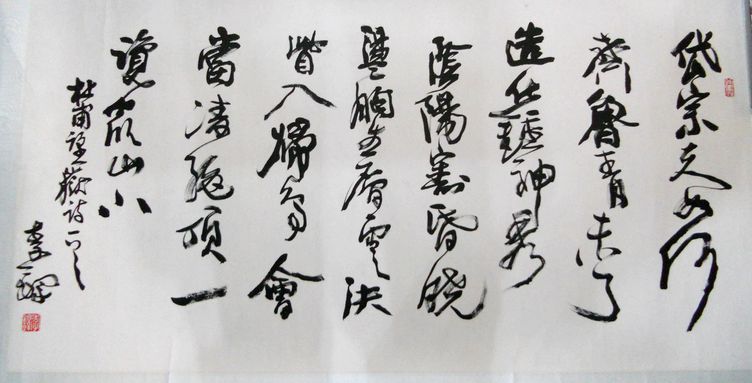 岱宗夫如何
齊魯青未了
造化鍾神秀
陰陽割昏晓
盪胸生層雲決
眥入歸鳥會
當凌絕頂一
覽眾山小
杜甫望嶽詩一
李鐸